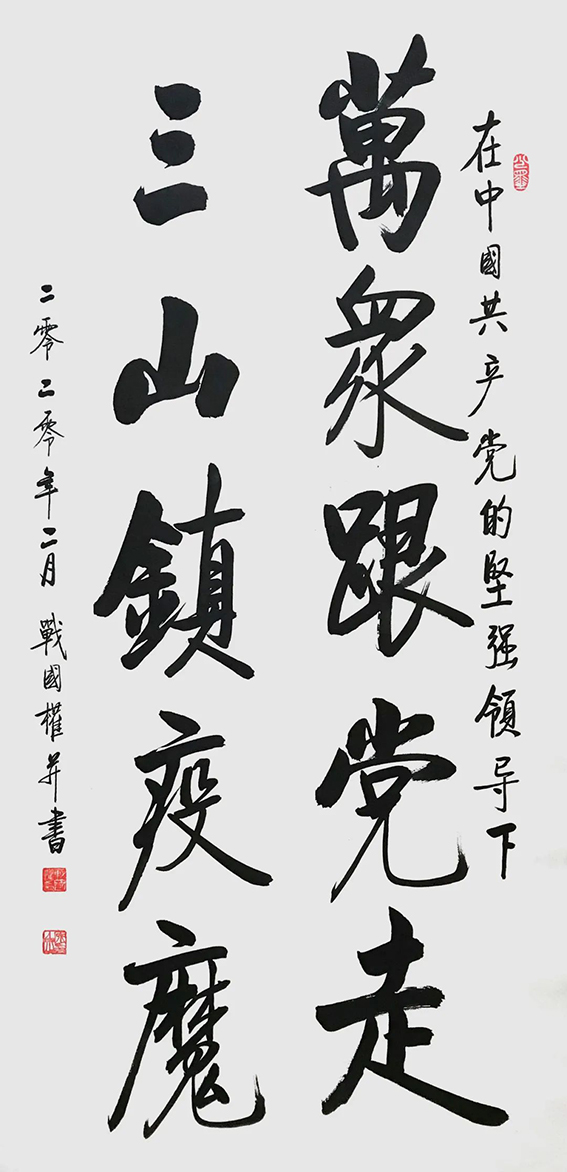 在中國共产党的堅强領导下
萬衆跟党走
三山鎮疫魔
二零二零年二月 戰國權并書